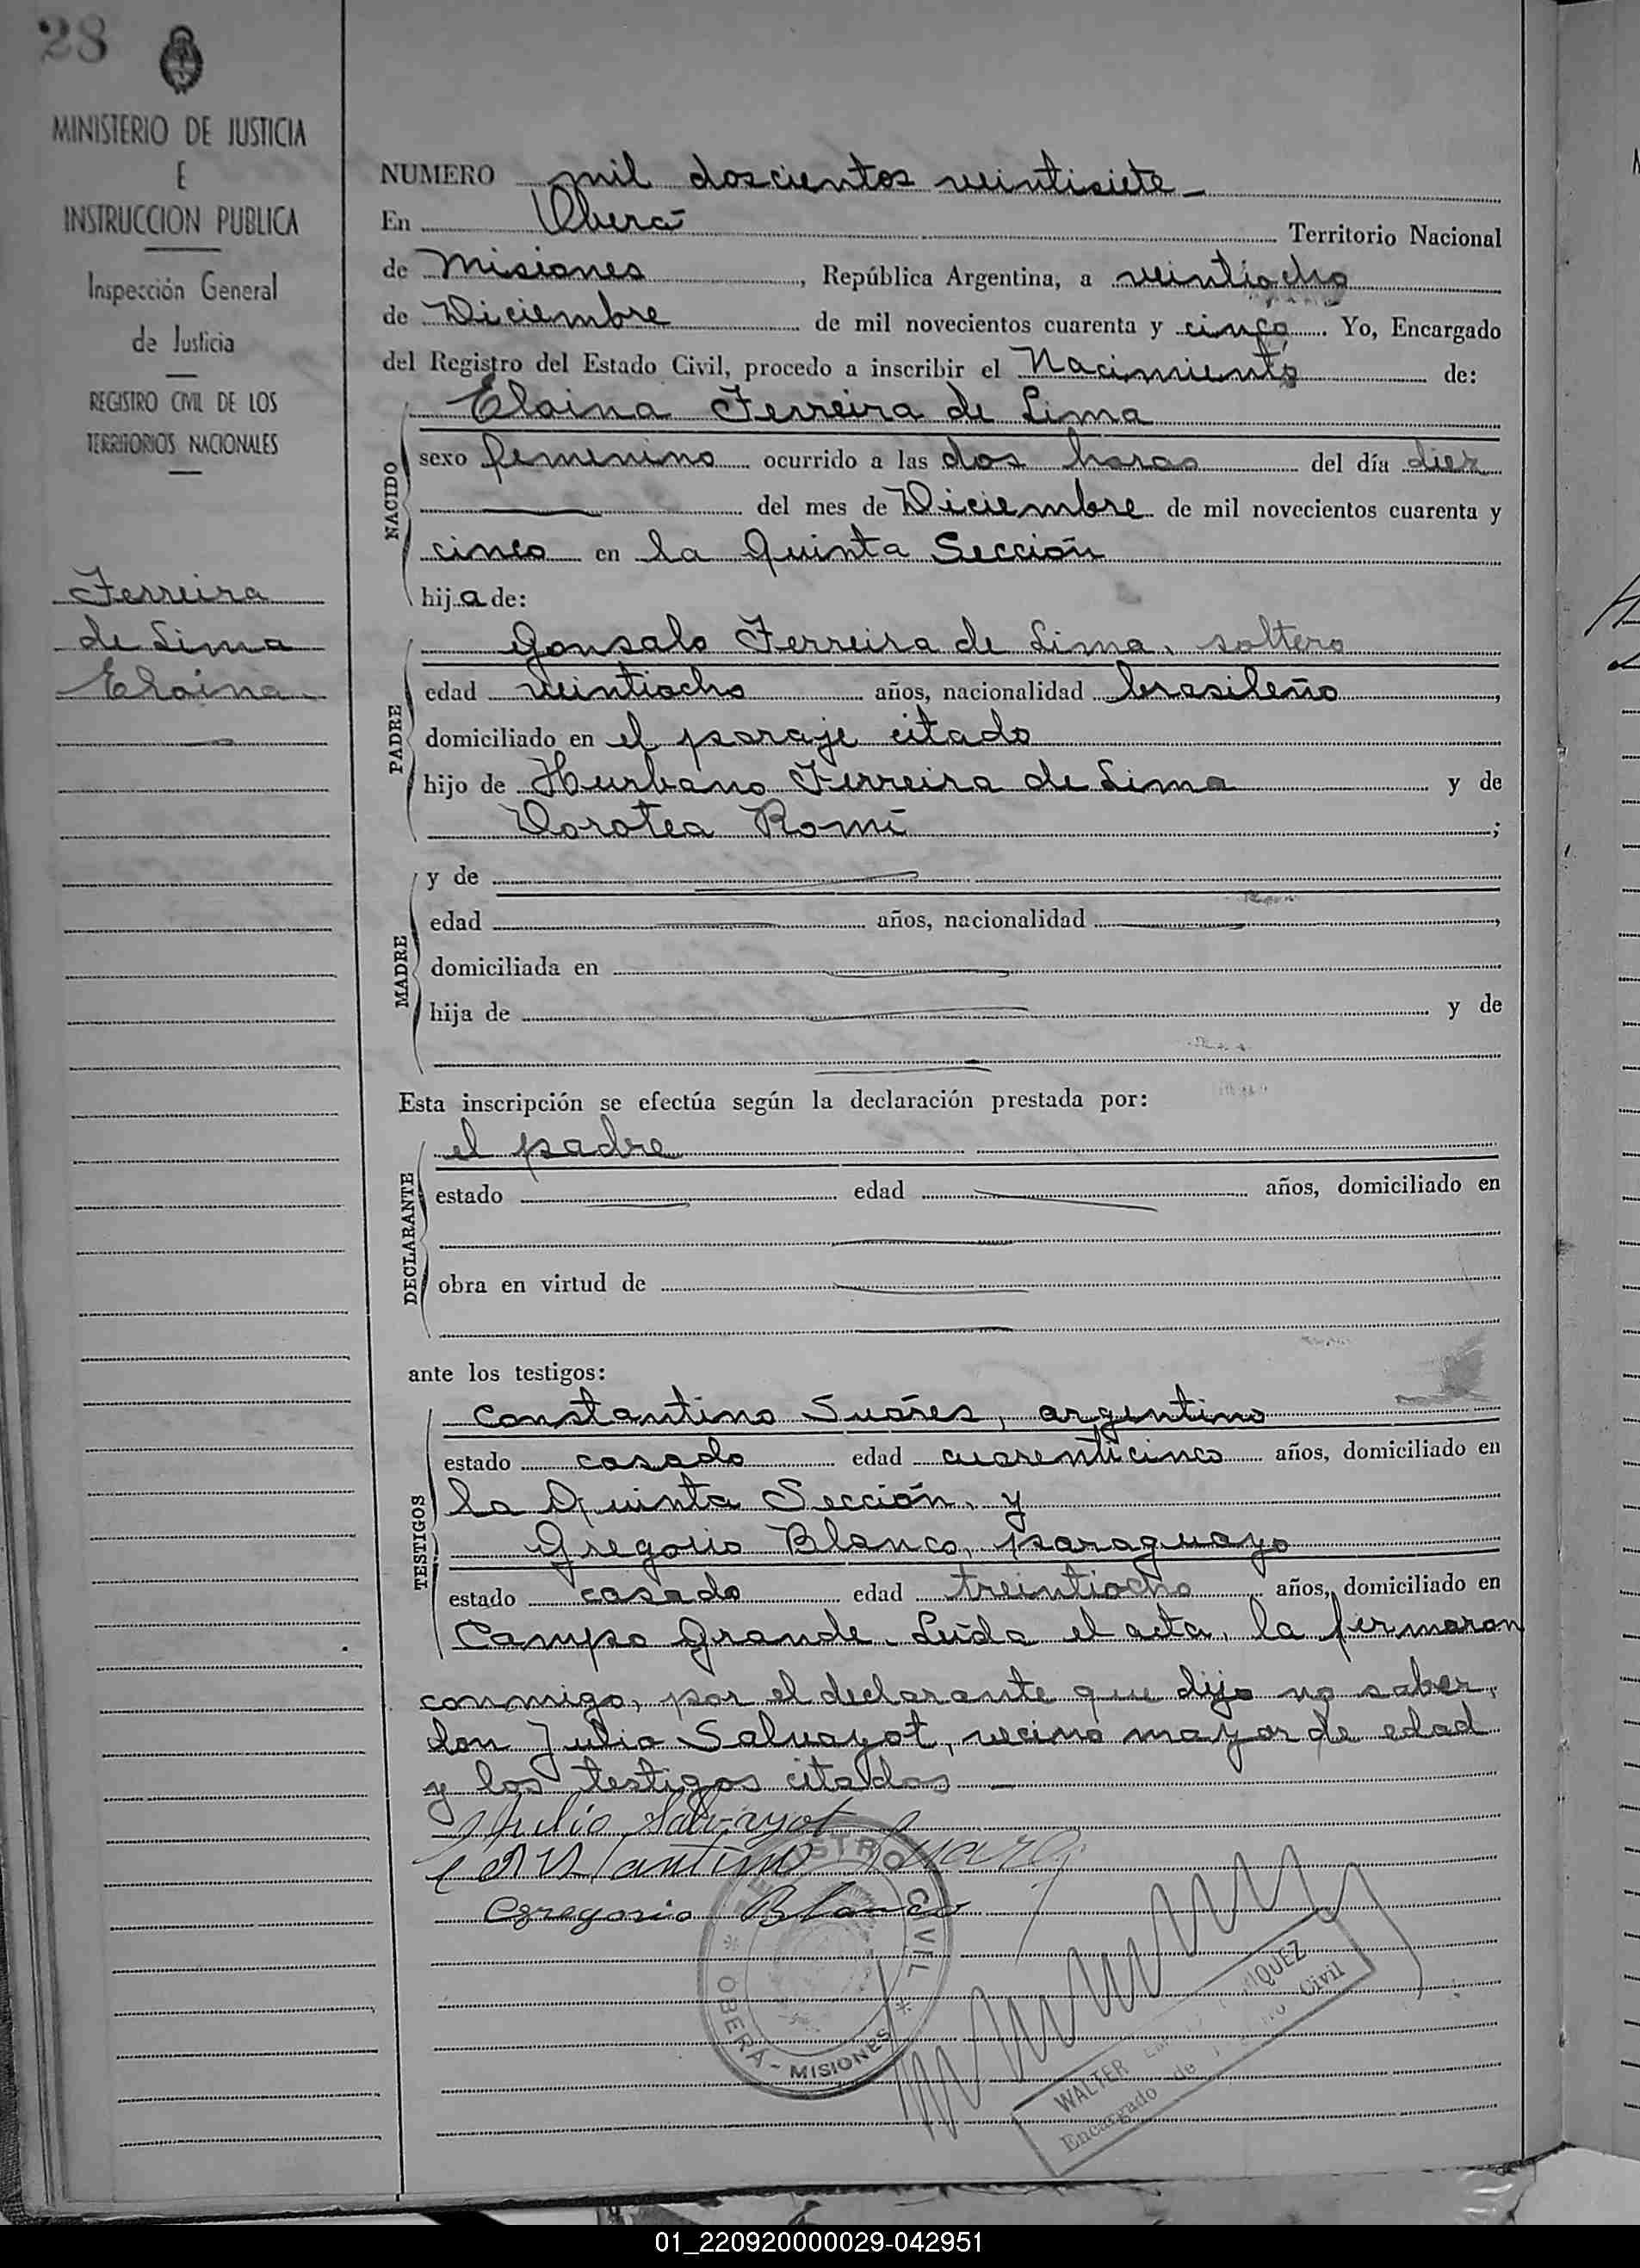 28
MINISTERIO DE JUSTICIA
E
INSTRUCCION PUBLICA
Inspección General
de Justicia
REGISTRO CIVIL DE LOS
TERRITORIOS NACIONALES
Ferreira
de Lima
Eloina
NUMERO mil doscientos veintisiete
En Oberá Territorio Nacional
de Misiones, República Argentina, a veintiocho
de Diciembre de mil novecientos cuarenta y cinco. Yo, Encargado
del Registro del Estado Civil, procedo a inscribir el Nacimiento de:
NACIDO
Eloina Ferreira de Lima
sexo femenino ocurrido a las dos horas del día diez
del mes de Diciembre de mil novecientos cuarenta y
cinco en la Quinta Sección
hija de:
PADRE
Gonsalo Ferreira de Lima, soltero
edad veintiocho años, nacionalidad brasileño,
domiciliado en el paraje citado
hijo de Hurbano Ferreira de Lima y de
Dorotea Romí;
MADRE
y de
edad años, nacionalidad,
domiciliada en
hija de y de
Esta inscripción se efectúa según la declaración prestada por:
DECLARANTE
el padre
estado edad años, domiciliado en
obra en virtud de
ante los testigos:
TESTIGOS
Constantino Suáres, argentino
estado casado edad cuarenticinco años, domiciliado en
la Quinta Sección, y
Gregorio Blanco, paraguayo
estado casado edad treintiocho años, domiciliado en
Campo Grande. Leída el acta, la firmaron
conmigo, por el declarante que dijo no saber,
don Julio Salvayot, vecino mayor de edad
y los testigos citados
Julio Salvayot
Constantino Suarez
Gregorio Blanco
REGISTRO CIVIL
OBERÁ - MISIONES
WALTER
Encargado de Civil
01_220920000029-042951